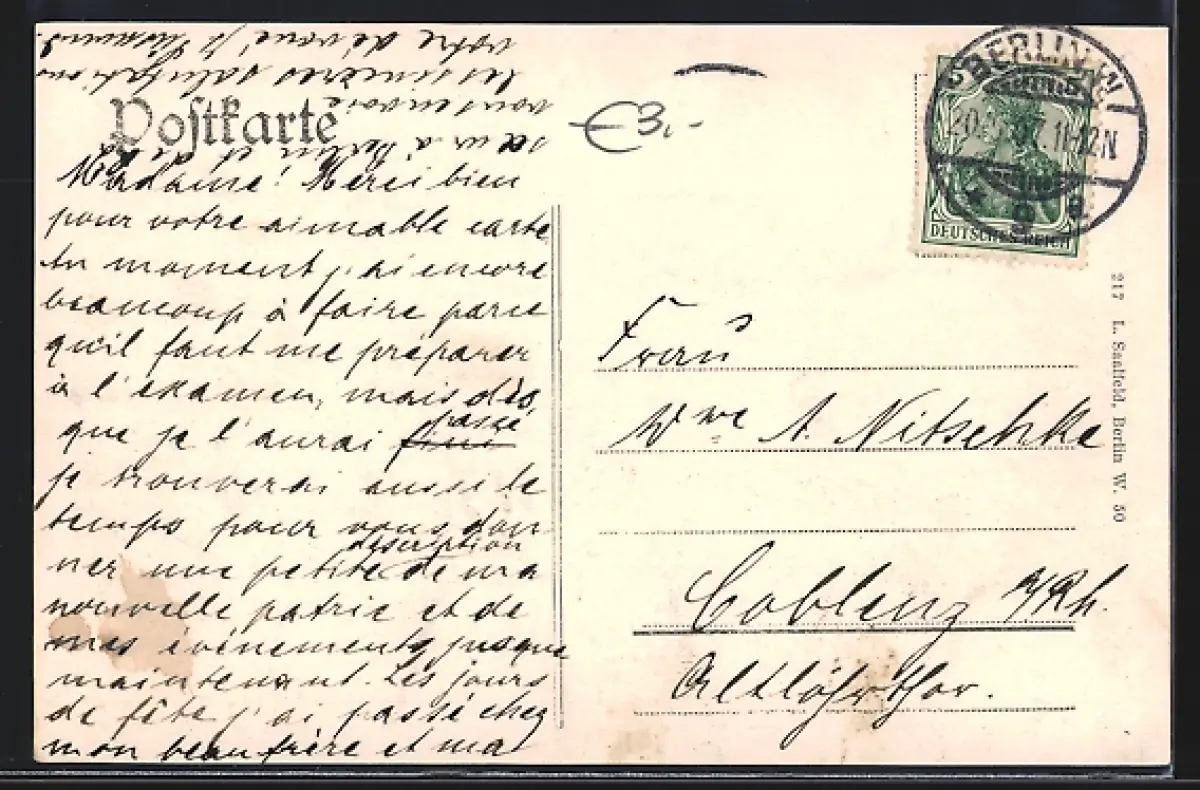 Postkarte
Madame! Merci bien
pour votre aimable carte
En moment j'ai encore
beaucoup à faire parce
qu'il faut me préparer
à l'examen, mais dès
que je l'aurai passé
je trouverai aussi le
temps pour vous don-
ner une petite description de ma
nouvelle patrie et de
mes événements jusque
maintenant. Les jours
de fête j'ai passé chez
mon beau frère et ma
sœur à Berlin et
vous envoie
les sincères salutations
votre dévoué
€3,-
5 5
DEUTSCHES REICH
BERLIN W.
11-12N
Frau
Wwe A. Nitschke
Coblenz a/Rh.
Altlöhrthor.
217 L. Saalfeld, Berlin W. 50